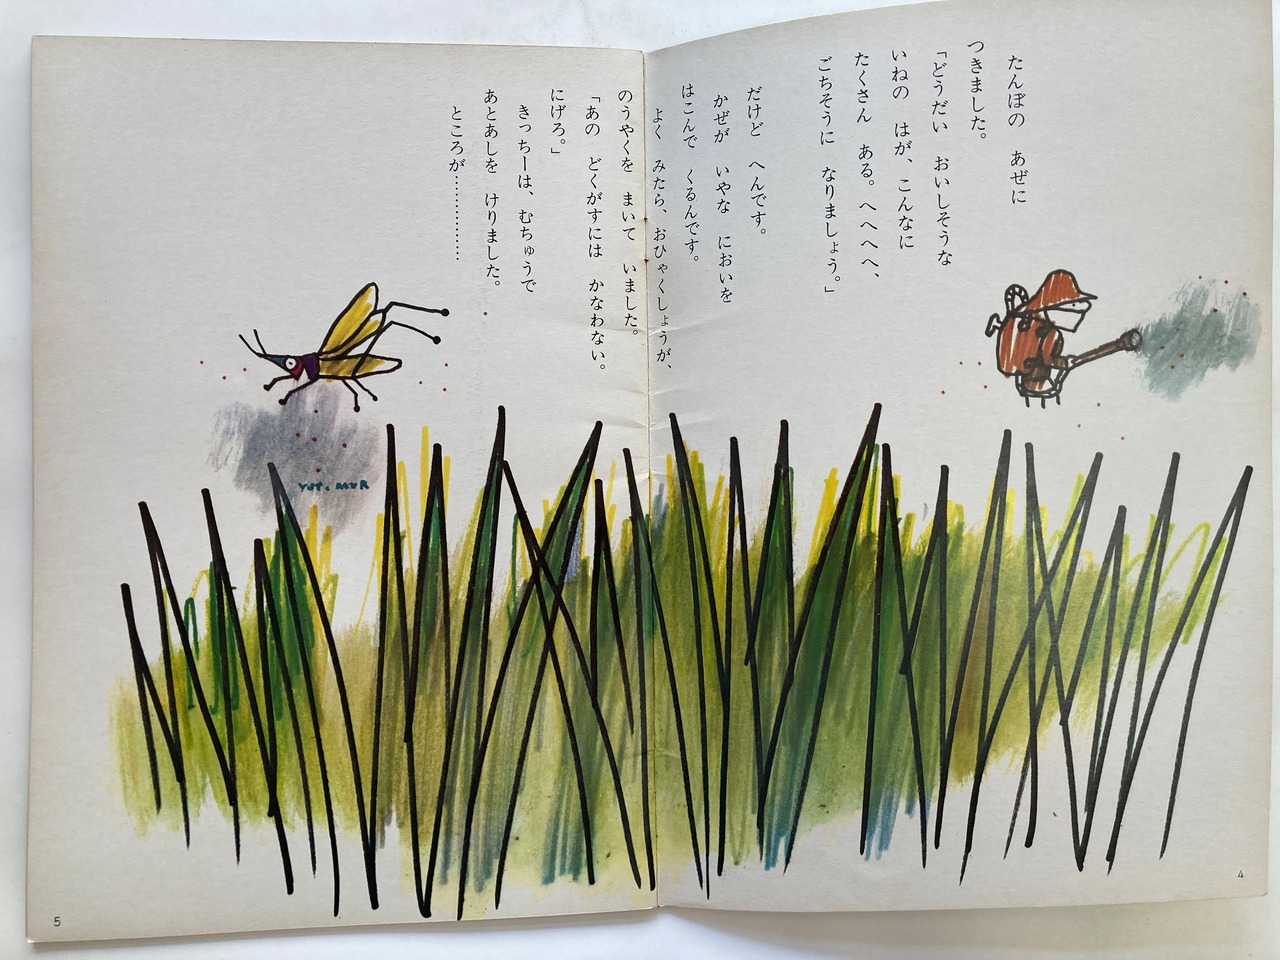 たんぼの　あぜに
つきました。
「どうだい　おいしそうな
いねの　はが、こんなに
たくさん　ある。へへへへ、
ごちそうに　なりましょう。」
だけど　へんです。
かぜが　いやな　においを
はこんで　くるんです。
よく　みたら、おひゃくしょうが、
のうやくを　まいて　いました。
「あの　どくがすには　かなわない。
にげろ。」
きっちーは、むちゅうで
あとあしを　けりました。
ところが……………
YUT. MUR
4
5